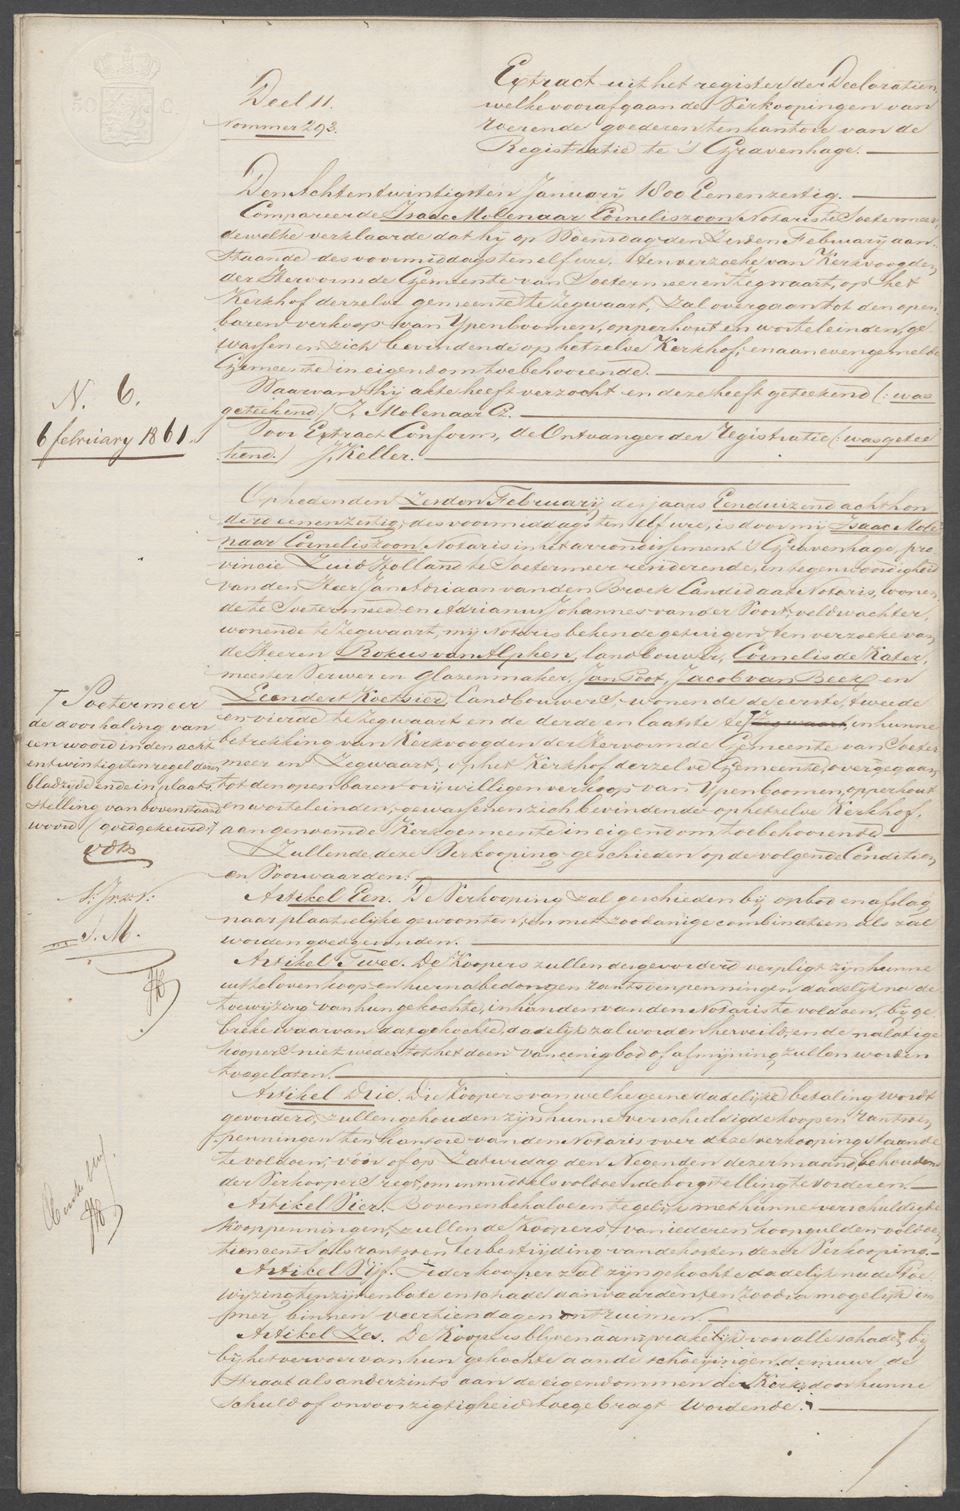 50 C.
Deel 11.
Nommer 293.
Extract uit het register der Declaratien,
welke vooraf gaan de Verkoopingen van
roerende goederen ten kantore van de
Registratie te 's Gravenhage.
Den Achtentwintigsten Januarij 1800 Eenenzestig.
Compareerde Isaac Molenaar Corneliszoon, Notaris te Soetermeer
dewelke verklaarde dat hij op Woensdag den Zesden Februarij aan-
staande des voormiddags ten elf ure, ten verzoeke van Kerkvoogden
der Hervormde Gemeente van Soetermeer en Zegwaart, op het
Kerkhof derzelve gemeente te Zegwaart, zal overgaan tot den open-
baren verkoop van Ypenboomen, opperhout en worteleinden, ge-
wassen en zich bevindende op hetzelve Kerkhof, en aan evengemelde
Gemeente in eigendom toebehoorende.
Waarvan hij akte heeft verzocht en deze heeft geteekend (: was
geteekend) I. Molenaar Cz.
Voor Extract Conform, de Ontvanger der Registratie (: was getee-
kend.) J. Keller.
N. 6.
6 february 1861.
Op heden den Zesden Februarij des jaars Eenduizend achthon-
derd eenenzestig, des voormiddags ten elf ure, is door mij Isaac Mole-
naar Corneliszoon, Notaris in het arrondissement 's Gravenhage, pro-
vincie Zuid Holland te Soetermeer resideerende, in tegenwoordigheid
van den Heer Jan Adriaan van den Broek Candidaat Notaris, wonen-
de te Soetermeer en Adrianus Johannes van der Poort, veldwachter,
wonende te Zegwaart, mij Notaris bekende getuigen, ten verzoeke van
de Heeren Rokus van Alphen, landbouwer, Cornelis de Kater,
meester Verwer en Glazenmaker, Jan Poot, Jacob van Beek en
Leendert Koetsier, Landbouwers, wonende de eerste, tweede
en vierde te Zegwaart en de derde en laatste te Zegwaart, in hunne
betrekking van Kerkvoogden der Hervormde Gemeente van Soeter-
meer en Zegwaart, op het Kerkhof derzelve Gemeente, overgegaan
tot den openbaren vrijwilligen verkoop van Ypenboomen, opperhout
en worteleinden, gewassen en zich bevindende op hetzelve Kerkhof,
aan genoemde Kerkgemeente in eigendom toebehoorende
Zullende deze Verkooping geschieden op de volgende Conditien
en Voorwaarden:
Artikel Een. De Verkooping zal geschieden bij opbod en afslag
naar plaatselijke gewoonten, en met zoodanige combinatien als zal
worden goedgevonden.
Artikel Twee. De Koopers zullen des gevorderd verpligt zijn hunne
uitteloven koop- en hierna bedongen rantsoenpenningen dadelijk na de
toewijzing van hun gekochte, in handen van den Notaris te voldoen, bij ge-
breke waarvan dat gekochte, dadelijk zal worden herveild, en de nalatige
koopers niet weder tot het doen van eenig bod of afmijning zullen worden
toegelaten.
Artikel Drie. Die Koopers van welke geene dadelijke betaling wordt
gevorderd, zullen gehouden zijn hunne verschuldigde koop en rantsoen-
penningen ten kantore van den Notaris over deze verkooping staande
te voldoen, vóór of op Zaturdag den Negenden dezer maand, behoudens
der Verkoopers regt, om inmiddels voldoende borgstelling te vorderen.
Artikel Vier. Boven en behalve en tegelijk met hunne verschuldigde
kooppenningen, zullen de Koopers van iederen koopgulden voldoen
tien cents als rantsoen ter bestrijding van de kosten dezer Verkooping.
Artikel Vijf. Ieder kooper zal zijn gekochte dadelijk na de toe-
wijzing te zijnen bate en schade aanvaarden en zoodra mogelijk im-
mer, binnen veertien dagen ontruimen.
Artikel Zes. De Koopers blijven aansprakelijk voor alle schade, bij
bij het vervoer van hun gekochte aan de schoeijingen, de muur de
Straat als anderzints aan de eigendommen der Kerk, door hunne
schuld of onvoorzigtigheid toegebragt wordende.
Soetermeer
de doorhaling van
een woord in den acht
entwintigsten regel dezer
bladzijde ende in plaats
stelling van bovenstaand
woord (goedgekeurd:)
I. M.